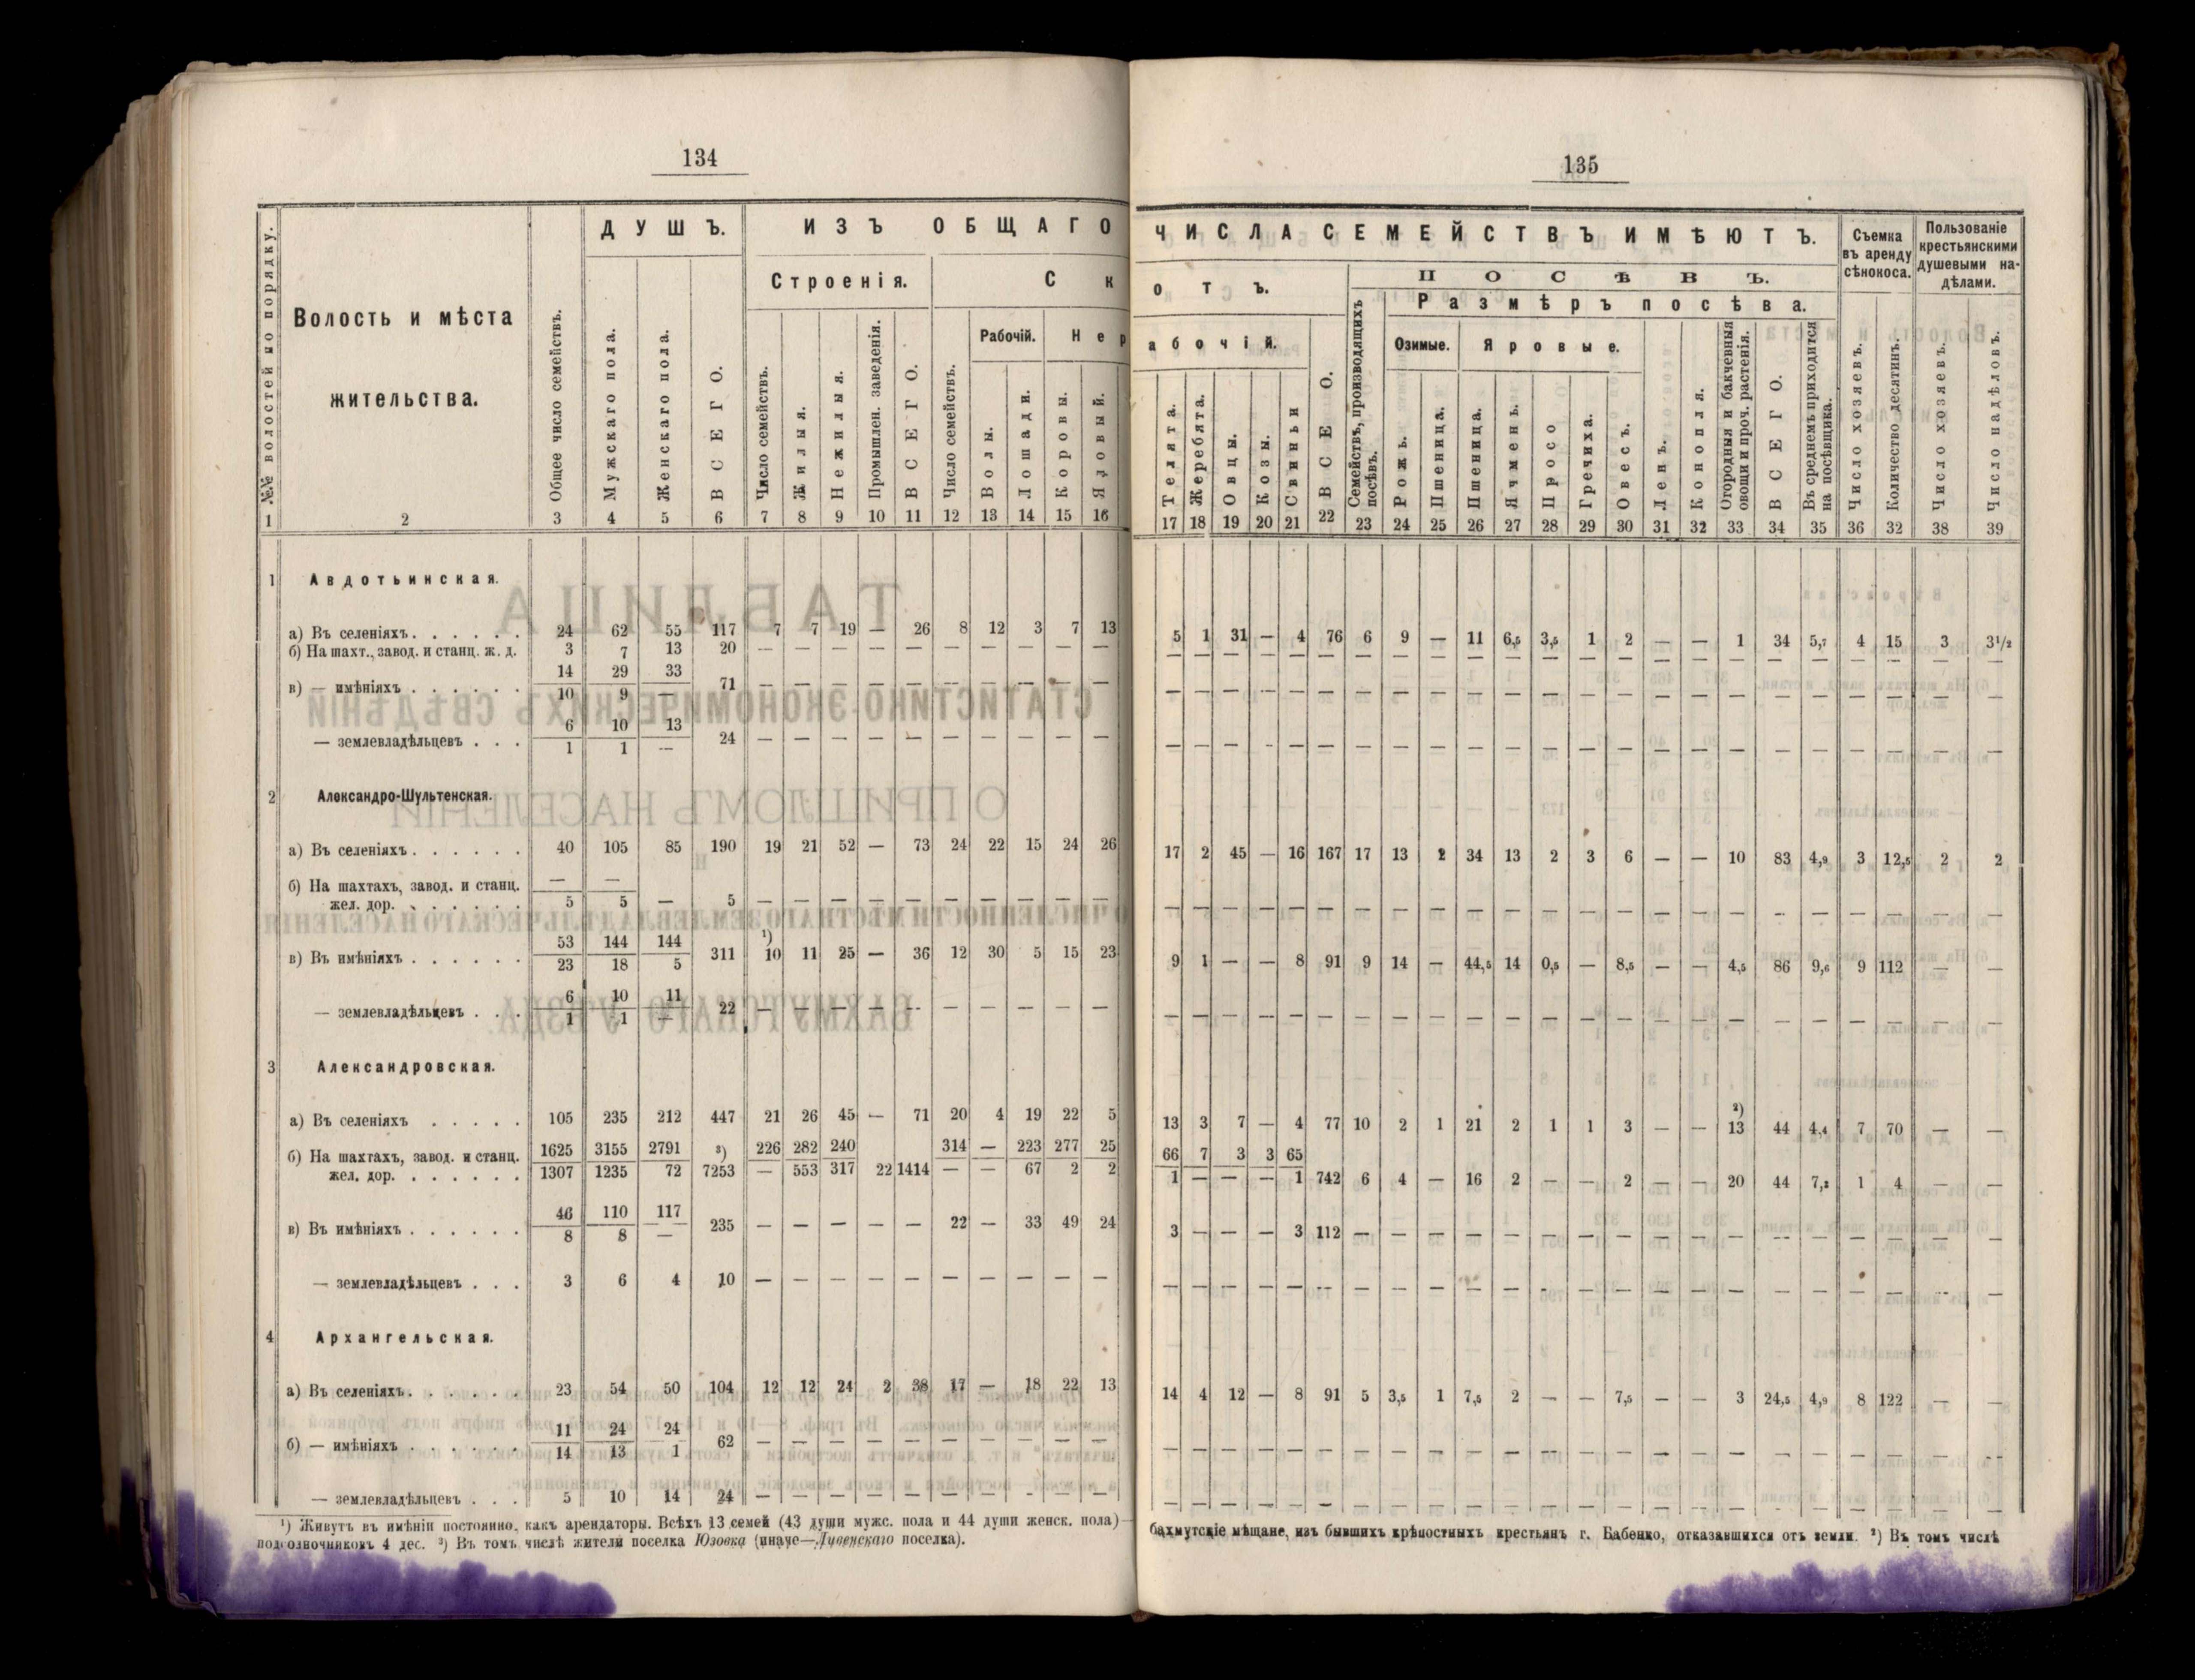 134
№№ волостей по порядку.
Волость и мѣста жительства.
Общее число семействъ.
ДУШЪ.
Мужскаго пола.
Женскаго пола.
ВСЕГО.
ИЗЪ ОБЩАГО
Строенія.
Число семействъ.
Жилыя.
Нежилыя.
Промышлен. заведенія.
ВСЕГО.
С К
Число семействъ.
Рабочій.
Волы.
Лошади.
Нер
Коровы.
Яловый.
1 2 3 4 5 6 7 8 9 10 11 12 13 14 15 16
1 Авдотьинская.
а) Въ селеніяхъ. . . . . . 24 62 55 117 7 7 19 — 26 8 12 3 7 13
б) На шахт., завод. и станц. ж. д. 3 7 13 20 — — — — — — — — — —
14 29 33
в) — имѣніяхъ . . . . . . 71 — — — — — — — — — —
10 9 —
6 10 13
— землевладѣльцевъ . . . 24 — — — — — — — — — —
1 1 —
2 Александро-Шультенская.
а) Въ селеніяхъ. . . . . . 40 105 85 190 19 21 52 — 73 24 22 15 24 26
б) На шахтахъ, завод. и станц. — —
жел. дор. . . . . . . 5 5 — 5 — — — — — — — — — —
53 144 144 ¹)
в) Въ имѣніяхъ . . . . . . 311 10 11 25 — 36 12 30 5 15 23
23 18 5
6 10 11
— землевладѣльцевъ . . . 22 — — — — — — — — — —
1 1 —
3 Александровская.
а) Въ селеніяхъ . . . . . 105 235 212 447 21 26 45 — 71 20 4 19 22 5
б) На шахтахъ, завод. и станц. 1625 3155 2791 ³) 226 282 240 314 — 223 277 25
жел. дор. . . . . . . 1307 1235 72 7253 — 553 317 22 1414 — — 67 2 2
46 110 117
в) Въ имѣніяхъ . . . . . . 235 — — — — — 22 — 33 49 24
8 8 —
— землевладѣльцевъ . . . 3 6 4 10 — — — — — — — — — —
4 Архангельская.
а) Въ селеніяхъ. . . . . . 23 54 50 104 12 12 24 2 38 17 — 18 22 13
11 24 24
б) — имѣніяхъ . . . . . . 62 — — — — — — — — — —
14 13 1
— землевладѣльцевъ . . . 5 10 14 24 — — — — — — — — — —
¹) Живутъ въ имѣніи постоянно, какъ арендаторы. Всѣхъ 13 семей (43 души мужс. пола и 44 души женск. пола)—
подсолночниковъ 4 дес. ³) Въ томъ числѣ жители поселка Юзовка (иначе—Ливенскаго поселка).
135
ЧИСЛА СЕМЕЙСТВЪ ИМѢЮТЪ.
О Т Ъ.
абочій.
Телята.
Жеребята.
Овцы.
Козы.
Свиньи
ВСЕГО.
ПОСѢВЪ.
Семействъ, производящихъ посѣвъ.
Размѣръ посѣва.
Озимые.
Рожь.
Пшеница.
Яровые.
Пшеница.
Ячмень.
Просо
Гречиха.
Овесъ.
Ленъ.
Конопля.
Огородныя и бакчевныя овощи и проч. растенія.
ВСЕГО.
Въ среднемъ приходится на посѣвщика.
Съемка въ аренду сѣнокоса.
Число хозяевъ.
Количество десятинъ.
Пользованіе крестьянскими душевыми надѣлами.
Число хозяевъ.
Число надѣловъ.
17 18 19 20 21 22 23 24 25 26 27 28 29 30 31 32 33 34 35 36 32 38 39
5 1 31 — 4 76 6 9 — 11 6,5 3,5 1 2 — — 1 34 5,7 4 15 3 3½
— — — — — — — — — — — — — — — — — — — — — — —
— — — — — — — — — — — — — — — — — — — — — — —
— — — — — — — — — — — — — — — — — — — — — — —
17 2 45 — 16 167 17 13 2 34 13 2 3 6 — — 10 83 4,9 3 12,5 2 2
— — — — — — — — — — — — — — — — — — — — — — —
9 1 — — 8 91 9 14 — 44,5 14 0,5 — 8,5 — — 4,5 86 9,6 9 112 — —
— — — — — — — — — — — — — — — — — — — — — — —
²)
13 3 7 — 4 77 10 2 1 21 2 1 1 3 — — 13 44 4,4 7 70 — —
66 7 3 3 65
1 — — — 1 742 6 4 — 16 2 — — 2 — — 20 44 7,2 1 4 — —
3 — — — 3 112 — — — — — — — — — — — — — — — — —
— — — — — — — — — — — — — — — — — — — — — — —
14 4 12 — 8 91 5 3,5 1 7,5 2 — — 7,5 — — 3 24,5 4,9 8 122 — —
— — — — — — — — — — — — — — — — — — — — — — —
— — — — — — — — — — — — — — — — — — — — — — —
бахмутскіе мѣщане, изъ бывшихъ крѣпостныхъ крестьянъ г. Бабенко, отказавшихся отъ земли. ²) Въ томъ числѣ